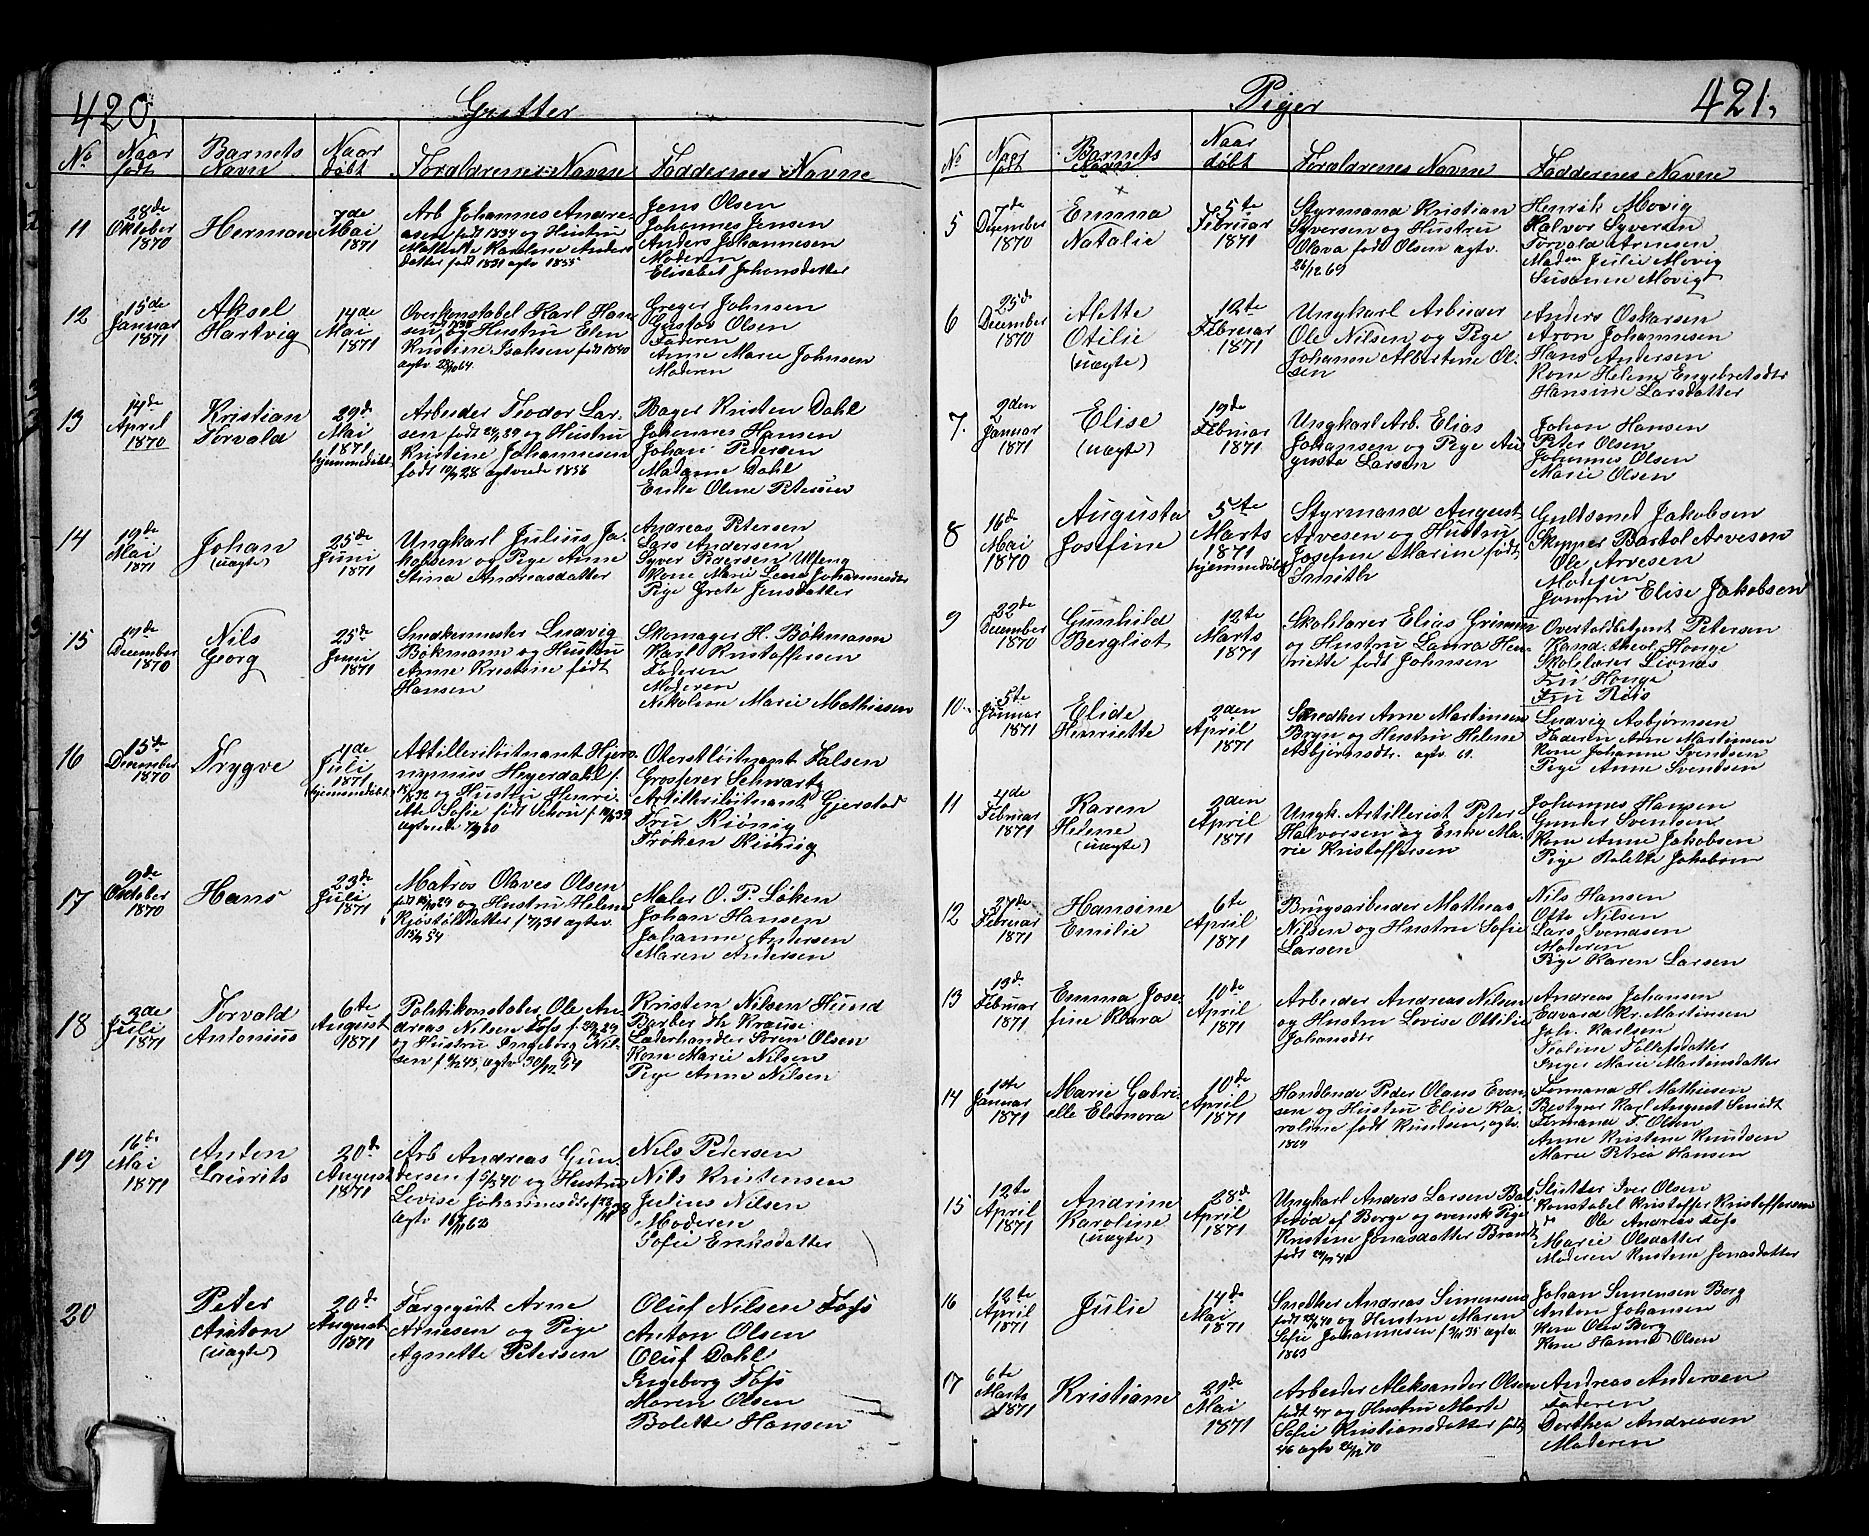 420,
Gutter
No
Naar født
Barnets Navn
Naar døbt
Forældrenes Navne
Faddernes Navne
11
28de
Oktober
1870
Herman
7de
Mai
1871
Arb Johannes Andre-
asen født 1834 og Hustru
Karoline Anders
datter født 1831 agtv 1855
Jens Olsen
Johannes Jensen
Anders Johannesen
Moderen
Elisabet Johansdatter
12
15de
Januar
1871
Aksel
Hartvig
14de
Mai
1871
Overkonstabel Karl Han
sen og Hustru Elen
Kristine Isaksen født 1840
agtv 64.
Greger Johnsen
Gustav Olsen
Faderen
Anne Marie Johnsen
Moderen
13
14de
April
1870
Kristian
Torvald
29de
Mai
1871
hjemmedøbt
Arbeider Teodor Lar-
sen født 39 og Hustru
Kristine Johannesen
født 28 agtviede 1856
Bager Kristen Dahl
Johannes Hansen
Johan Petersen
Madame Dahl
Enke Oline Petersen
14
19de
Mai
1871
Johan
(uægte)
25de
Juni
1871
Ungkarl Julius Ja-
kobsen og Pige Anne
Stina Andreasdatter
Andreas Petersen
Lars Andersen
Syver Pedersen Ulfeng
Kone Marie Lene Johannesdtr
Pige Grete Jensdatter
15
19de
December
1870
Nils
Georg
25de
Juni
1871
Snedkermester Ludvig
Bøkmann og Hustru
Anne Kristine født
Hansen
Skomager H. Bøkmann
Karl Kristoffersen
Faderen
Moderen
Nikoline Marie Mathisen
16
15de
December
1870
Trygve
4de
Juli
1871
(hjemmedøbt)
Artilleriløitnant Hjero-
nymus Heyerdahl f.
1832 og Hustru Henri-
ette Sofie født f 39
agtviede 60
Oberstløitnant Falsen
Grosserer Schwartz
Artilleriløitnant Gjerstad
Fru Kiønig
Frøken Kiønig
17
9de
October
1870
Hans
23de
Juli
1871
Matros Olaves Olsen
født 29 og Hustru Helene
Kjøstolsdatter f 31 agtv
54
Maler O. P. Løken
Johan Hansen
Johanne Andersen
Maren Andersen
18
2de
Juli
1871
Torvald
Antonius
6te
August
1871
Politikonstabel Ole An-
dreas Nilsen Foss f. 29
og Hustru Ingeborg Nil-
sen f 45, agtv
Kristen Nilsen Hund
Barber Th Krause
Læderhandler Søren Olsen
Kone Marie Nilsen
Pige Anne Nilsen
19
16de
Mai
1871
Anton
Laurits
20de
August
1871
Arb Andreas Gun-
dersen f 40 og Hustru
Lovise Johannesdtr f 38
agtv 62
Nils Pedersen
Nils Kristensen
Julius Nilsen
Moderen
Sofie Eriksdatter
20
Peter
Anton
(uægte)
20de
August
1871
Færgegut Arne
Arnesen og Pige
Agnette Petersen
Oluf Nilsen Foss
Anton Olsen
Oluf Dahl
Ingeborg Foss
Maren Olsen
Bolette Hansen
Piger
421,
No
Naar født
Barnets Navn
Naar døbt
Forældrenes Navne
Faddernes Navne
5
7de
December
1870
Emma
Natalie
5te
Februar
1871
Styrmand Kristian
Syversen og Hustru
Olava født Olsen agtv.
26/12 69
Henrik Movig
Halvor Syversen
Torvald Arnesen
Madm Julie Movig
Susanne Movig
6
25de
December
1870
Alette
Otilie
(uægte)
12te
Februar
1871
Ungkarl Arbeider
Ole Nilsen og Pige
Johanne Albertine Ol-
sen
Anders Oskarsen
Aron Johannesen
Hans Andersen
Kone Helene Engebretsdtr
Hansine Larsdatter
7.
2den
Januar
1871
Elise
(uægte)
19de
Februar
1871
Ungkarl Arb. Elias
Johansen og Pige Au
gusta Larsen
Johan Hansen
Peter Olsen
Johannes Olsen
Marie Olsen
8
16de
Mai
1870
Augusta
Josefine
5te
Marts
1871
hjemmedøbt
Styrmand August
Arvesen og Hustru
Josefine Marine født
Smith
Guldsmed Jakobsen
Skipper Bartol Arvesen
Ole Arvesen
Moderen
Jomfru Elise Jakobsen
9
22de
December
1870
Gunhilda
Bergliot
12te
Marts
1871
Skolelærer Elias Grimm
og Hustru Laura Hen-
riette født Johnsen
Overtoldbetjent Petersen
Kand. theol. Honge
Skolelærer Lionæs
Fru Honge
Fru Reis
10.
5te
Januar
1871
Elide
Henriette
2den
April
1871
Snedker Arne Martinsen
Bryn og Hustru Helene
Asbjørnsdtr. agtv 61.
Ludvig Asbjørnsen
Faderen Arne Martinsen
Kone Johanne Svendsen
Pige Anne Svendsen
11
4de
Februar
1871
Karen
Helene
(uægte)
2den
April
1871
Ungk. Artillerist Peter
Halvorsen og Enke Ma-
rie Kristoffersen
Johannes Hansen
Gunder Svendsen
Kone Anne Jakobsen
Pige Bolette Jakobsen
12
27de
Februar
1871
Hansine
Emilie
6te
April
1871
Brugsarbeider Mathias
Nilsen og Hustru Sofie
Larsen
Nils Hansen
Otto Nilsen
Lars Svendsen
Moderen
Pige Karen Larsen
13
13de
Februar
1871
Emma Jose-
fine Klara
10de
April
1871
Arbeider Andreas Nilsen
og Hustru Lovise Ottilie
Johansdtr
Andreas Johansen
Edvard Kr. Martinsen
Joh. Karlsen
Inger Marie Martinsdatter
14
1ste
Januar
1871
Marie Gabri-
elle Eleonora
10de
April
1871
Handlende Peder Olaus Even-
sen og Hustru Elise Ka-
roline født Knudsen, agtv.
1864
Formand H. Mathiesen
Bestyrer Karl August Smidt
Formand F. Olsen
Anne Kristine Knudsen
Marie Petrea Hansen
15
12te
April
1871
Andrine
Karoline
(uægte)
28de
April
1871
Ungkarl Anders Larsen Bal-
lerød af Borge og svensk Pige
Kristine Jonasdatter Brandt
født 40
Slutter Iver Olsen
Konstabel Kristoffer Kristoffersen
do Ole Andreas Foss
Marie Olsdatter
Moderen Kristine Jonasdatter
16
12te
April
1871
Julie
14de
Mai
1871
Snedker Andreas Simensen
født 40 og Hustru Maren
Sofie Johannesen f 35 agtv.
1863
Johan Simensen Borg
Anton Johansen
Kone Olea Borg
Kone Hanna Olsen
17
6te
Marts
1871
Kristiane
21de
Mai
1871
Arbeider Aleksander Olsen
født 47 og Hustru Marte
Sofie Kristiansdatter født
46 agtv 26/12 70
Andreas Andersen
Faderen
Dorthea Andreasen
Moderen